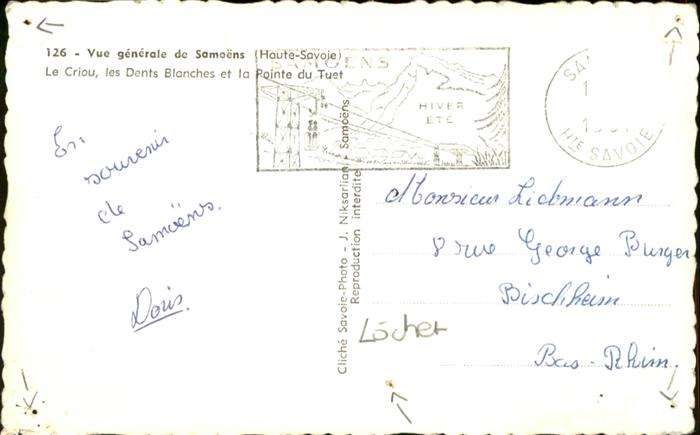 126 - Vue générale de Samoëns (Haute-Savoie)
Le Criou, les Dents Blanches et la Pointe du Tuet
SAMOENS
HIVER
ETÉ
SA
1
Hte SAVOIE
En
souvenir
de
Samoëns.
Doris.
Cliché Savoie-Photo - J. Niksarlian - Samoëns
Reproduction interdite
Monsieur Liebmann
8 rue George Burger
Bischheim
Bas-Rhin.
Löcher